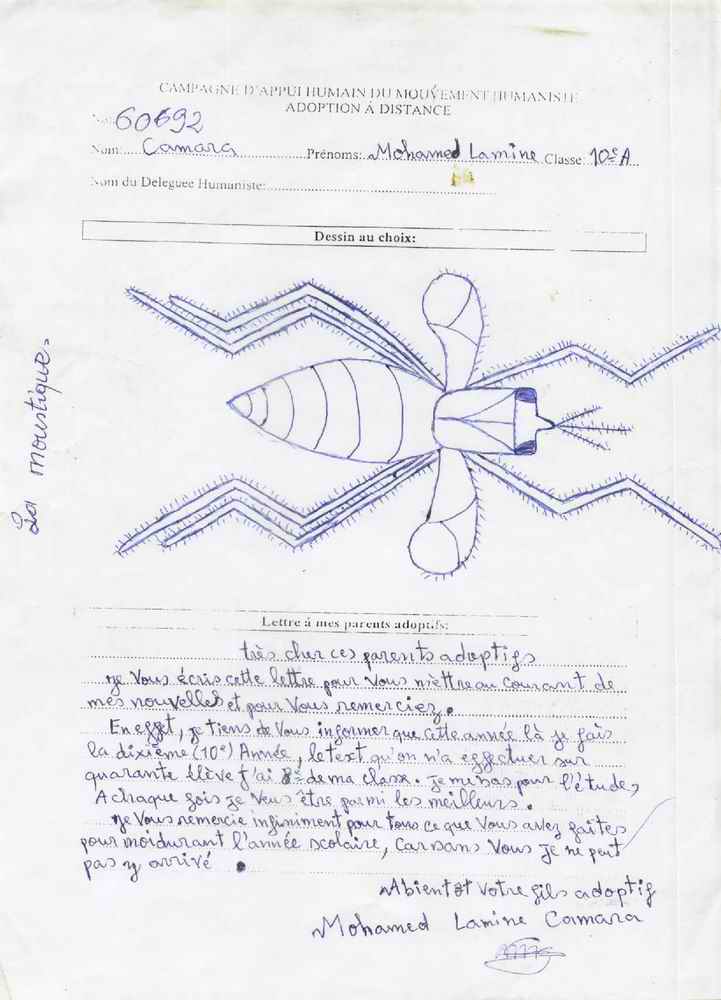 CAMPAGNE D'APPUI HUMAIN DU MOUVEMENT HUMANISTE
ADOPTION Á DISTANCE
No: 60692
Nom: Camara Prénoms: Mohamed Lamine Classe: 10e A
Nom du Deleguee Humaniste:
Dessin au choix:
La moustique.
Lettre á mes parents adoptifs:
très cher ces parents adoptifs
Je Vous écris cette lettre pour Vous mèttre au Courant de
mes nouvelles et pour Vous remerciez.
En effet, je tiens de Vous informer que cette année là je fais
la dixième (10e) Année, le text qu'on n'a effectuer sur
quarante élève j'ai 8e de ma classe. Je me bas pour l'étude,
A chaque fois je veus être parmi les meilleurs.
Je Vous remercie infiniment pour tous ce que Vous avez faites
pour moi durant l'année scolaire, Car sans Vous Je ne peut
pas y arrivé
Abientôt Votre fils adoptif
Mohamed Lamine Camara